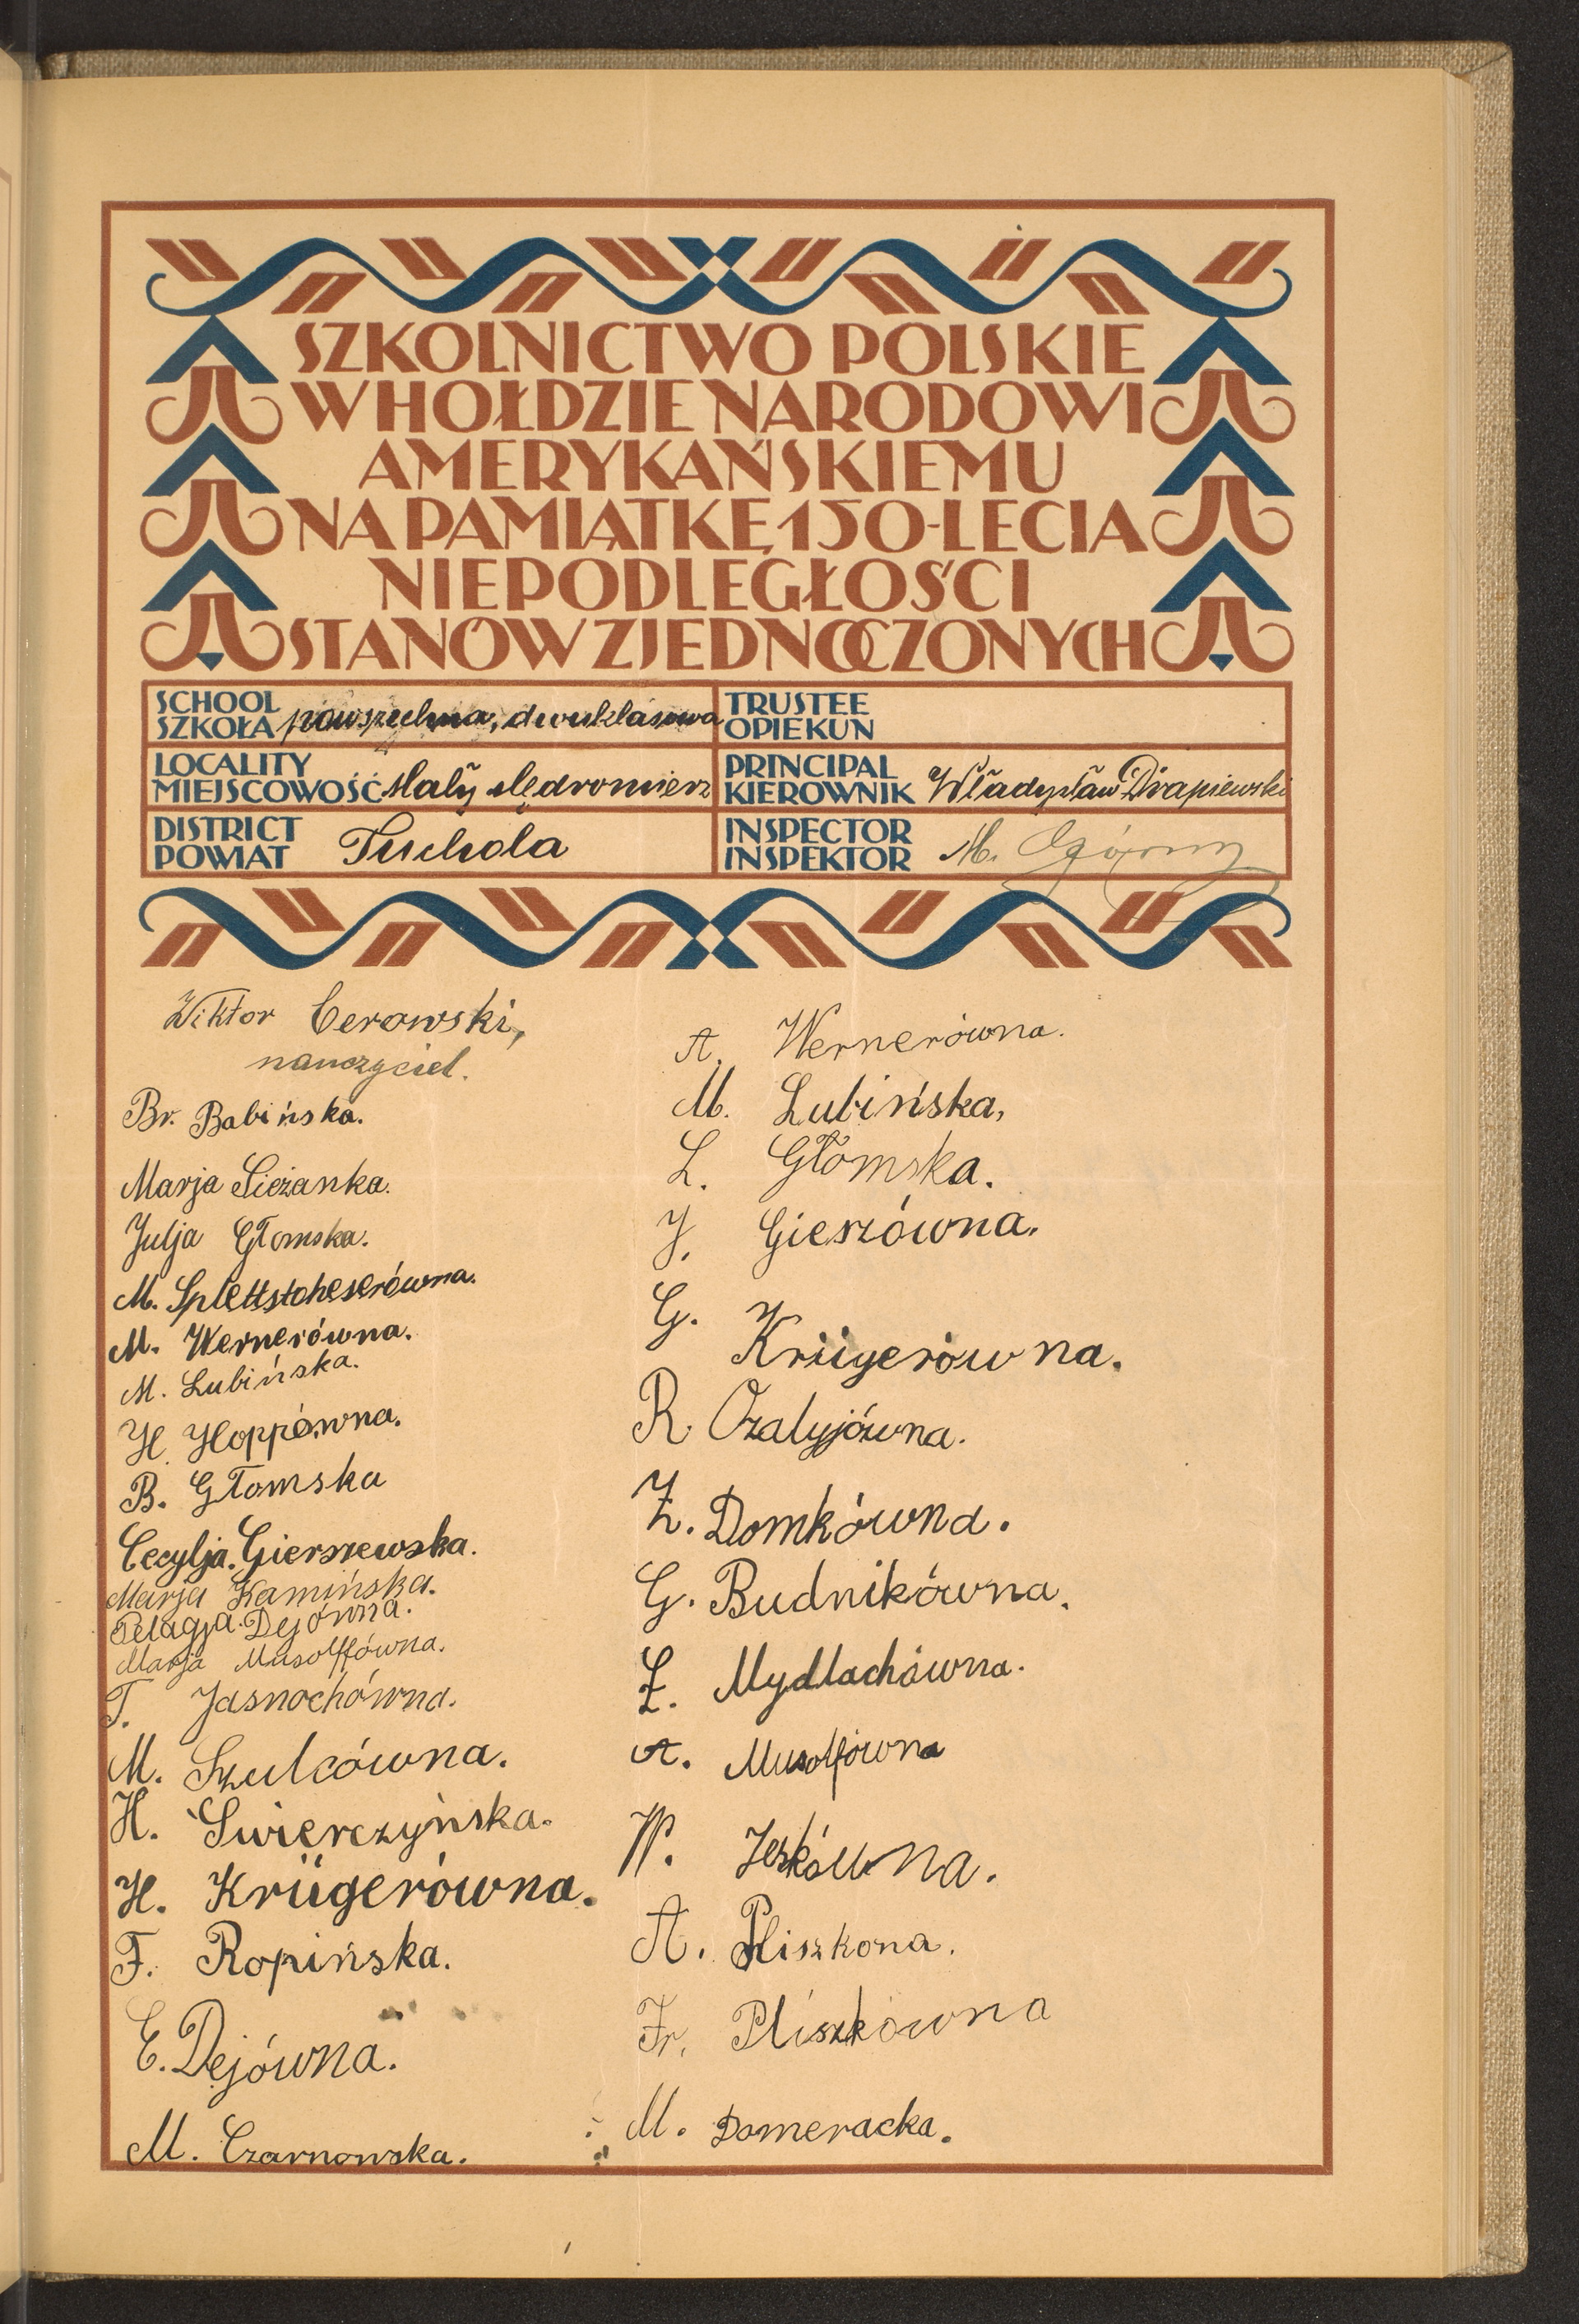 SZKOLNICTWO POLSKIE
W HOŁDZIE NARODOWI
AMERYKAŃSKIEMU
NA PAMIĄTKĘ 150-LECIA
NIEPODLEGŁOŚCI
STANÓW ZJEDNOCZONYCH
SCHOOL
SZKOŁA powszechna, dwuklasowa
TRUSTEE
OPIEKUN
LOCALITY
MIEJSCOWOŚĆ Mały Mędromierz
PRINCIPAL
KIEROWNIK Władysław Drapiewski
DISTRICT
POWIAT Tuchola
INSPECTOR
INSPEKTOR M. Ogórny
Wiktor Cerowski,
nauczyciel.
Br. Babińska.
Marja Sieżanka.
Julja Głomska.
M. Splettstoheserówna.
M. Wernerówna.
M. Lubińska.
H. Hoppówna.
B. Głomska
Cecylja. Gierszewska.
Marja Kamińska.
Pelagja. Dejówna.
Marja Musolffówna.
T. Jasnochówna.
M. Szulcówna.
H. Świerczyńska.
H. Krügerówna.
F. Ropińska.
E. Dejówna.
M. Czarnowska.
A. Wernerówna.
M. Lubińska,
L. Głomska.
J. Gieszówna.
G. Krügerówna.
R. Ozalyjówna.
Z. Domkówna.
G. Budnikówna.
Ł. Mydlachówna.
A. Musolfówna
W. Jeskówna.
A. Pliszkona.
Fr. Pliszkówna
M. Domeracka.